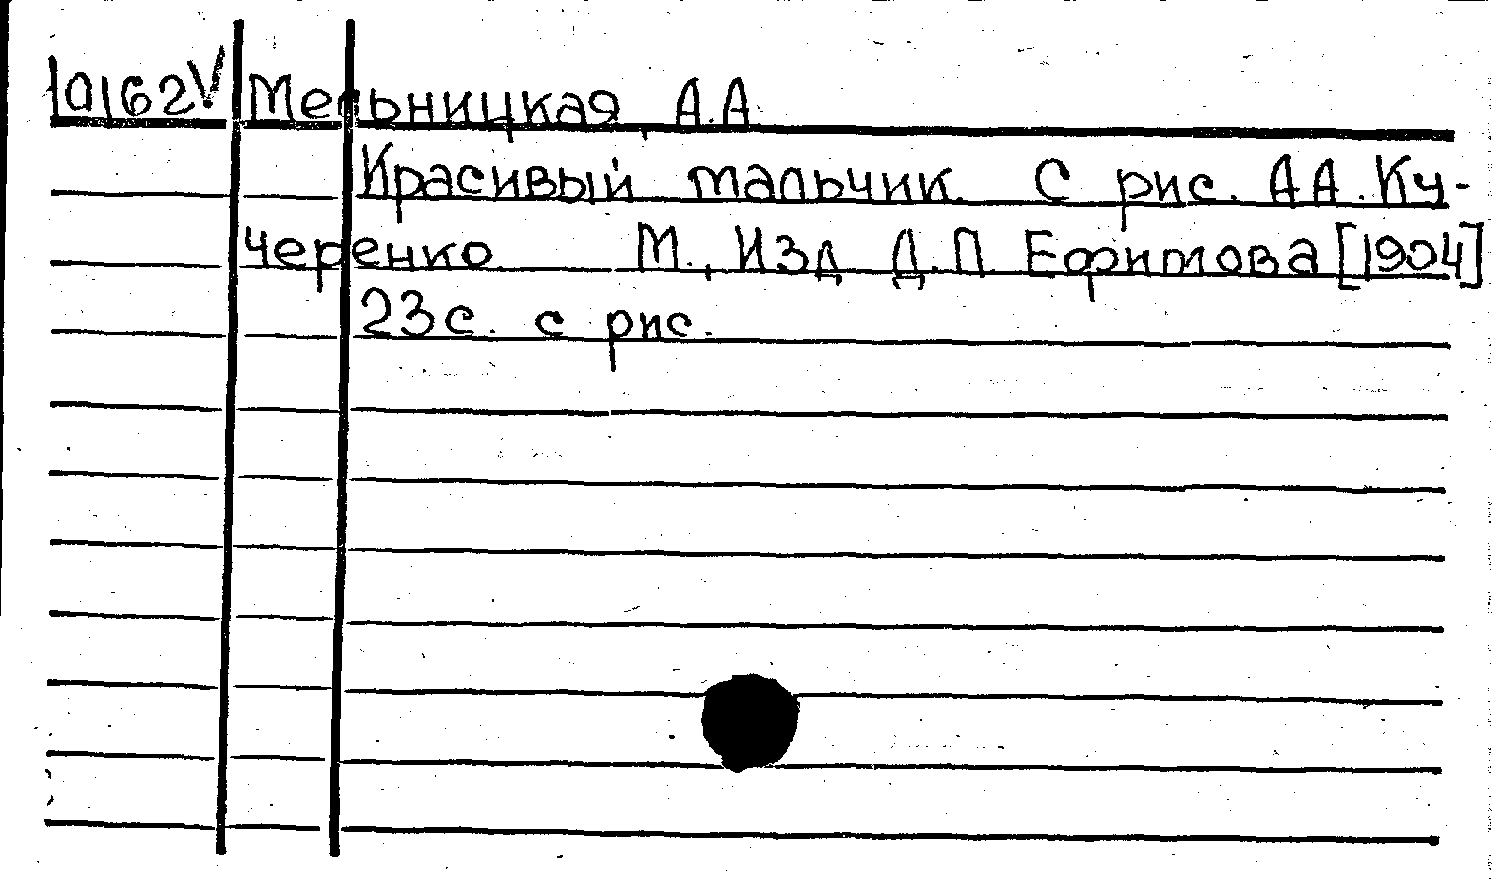 10162V Мельницкая, А.А
Красивый мальчик. С рис. А А. Ку-
черенко М., Изд Д.П Ефимова [1904]
23с. с рис.